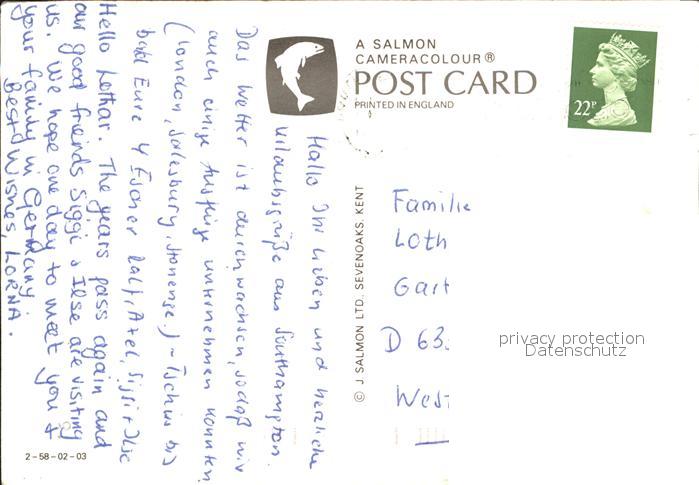 A SALMON
CAMERACOLOUR®
POST CARD
PRINTED IN ENGLAND
22P
Hallo Ihr Lieben und herzliche
Urlaubsgrüße aus Southampton.
Das Wetter ist durchwachsen, sodaß wir
auch einige Ausflüge unternehmen konnten
(London, Salesbury, Stonense.) ~ Tschüs bis
bald Eure 4 Escher Ralf, Axel, Siggi + Ilse
Hello Lothar. The years pass again and
our good friends Siggi & Ilse are visiting
us. We hope one day to meet you &
your family in Germany.
Best Wishes, LORNA.
© J. SALMON LTD. SEVENOAKS, KENT
Familie
Loth
Gart
D 63
West
privacy protection
Datenschutz
2-58-02-03